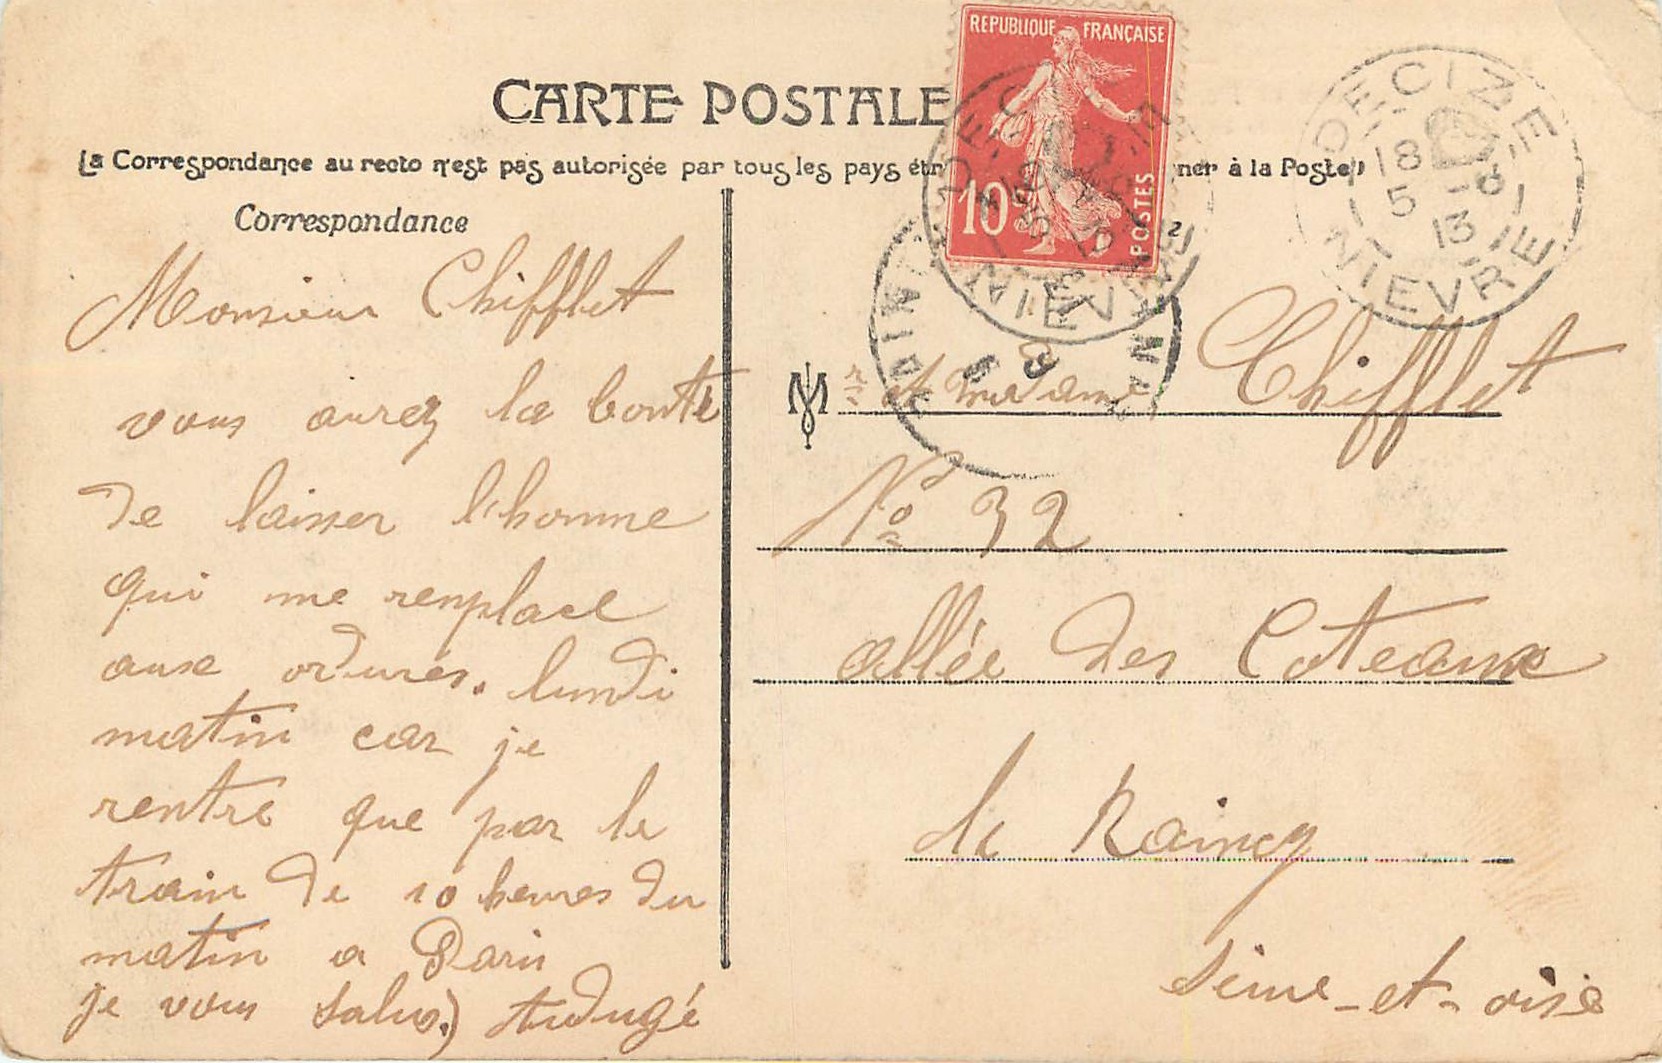 CARTE POSTALE
La Correspondance au recto n'est pas autorisée par tous les pays étr
ner à la Poste)
REPUBLIQUE FRANÇAISE
10c
POSTES
DECIZE
18
5 - 8
13
NIEVRE
Correspondance
Monsieur Chifflet
vous aurez la bonté
de laisser l'homme
qui me renplace
aux ordures. lundi
matin car je
rentre que par le
train de 10 heures du
matin a Paris
je vous salus.)
M
r et Madame Chifflet
No 32
allée des Coteaux
le Raincy
Seine-et-oise